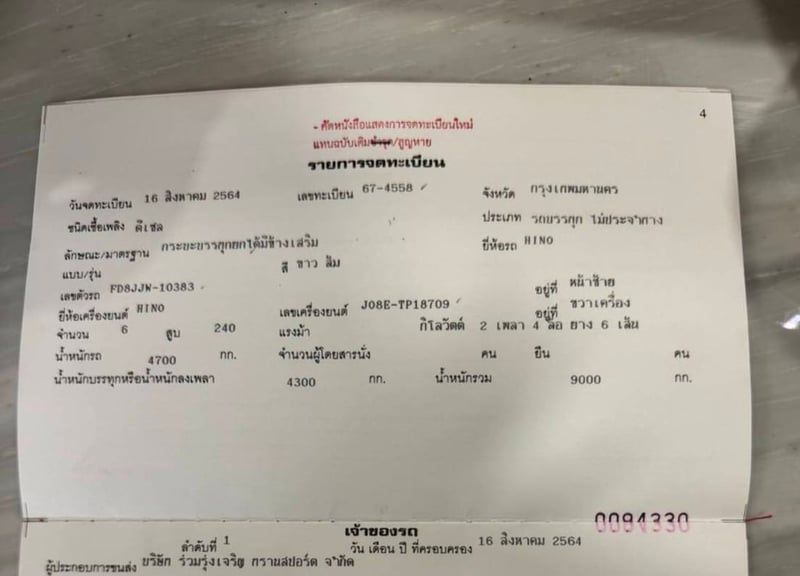 4
- คัดหนังสือแสดงการจดทะเบียนใหม่
แทนฉบับเดิมชำรุด/สูญหาย
รายการจดทะเบียน
วันจดทะเบียน 16 สิงหาคม 2564 เลขทะเบียน 67-4558 จังหวัด กรุงเทพมหานคร
ชนิดเชื้อเพลิง ดีเซล ประเภท รถบรรทุก ไม่ประจำทาง
ลักษณะ/มาตรฐาน กระบะบรรทุกยกได้มีข้างเสริม ยี่ห้อรถ HINO
แบบ/รุ่น สี ขาว ส้ม
เลขตัวรถ FD8JJW-10383 อยู่ที่ หน้าซ้าย
ยี่ห้อเครื่องยนต์ HINO เลขเครื่องยนต์ J08E-TP18709 อยู่ที่ ขวาเครื่อง
จำนวน 6 สูบ 240 แรงม้า กิโลวัตต์ 2 เพลา 4 ล้อ ยาง 6 เส้น
น้ำหนักรถ 4700 กก. จำนวนผู้โดยสารนั่ง คน ยืน คน
น้ำหนักบรรทุกหรือน้ำหนักลงเพลา 4300 กก. น้ำหนักรวม 9000 กก.
0094330
เจ้าของรถ
ลำดับที่ 1 วัน เดือน ปี ที่ครอบครอง 16 สิงหาคม 2564
ผู้ประกอบการขนส่ง บริษัท ร่วมรุ่งเจริญ ทรานสปอร์ต จำกัด